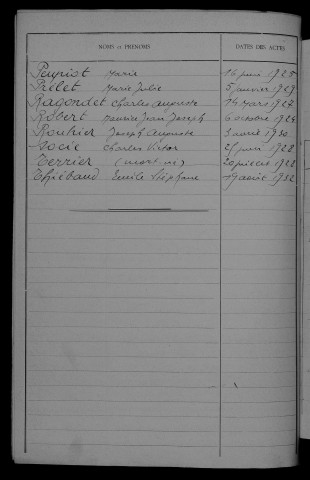 NOMS ET PRÉNOMS DATES DES ACTES
Peyrist Marie 16 juin 1925
Prelet Marie Julie 5 janvier 1927
Ragondet Charles Auguste 14 mars 1927
Robert Maurice Jean Joseph 6 octobre 1924
Rouhier Joseph Auguste 3 avril 1930
Socié Charles Victor 25 juin 1922
Terrier (mort-né) 20 juillet 1922
Thiébaud Emile Stéphane 19 août 1932